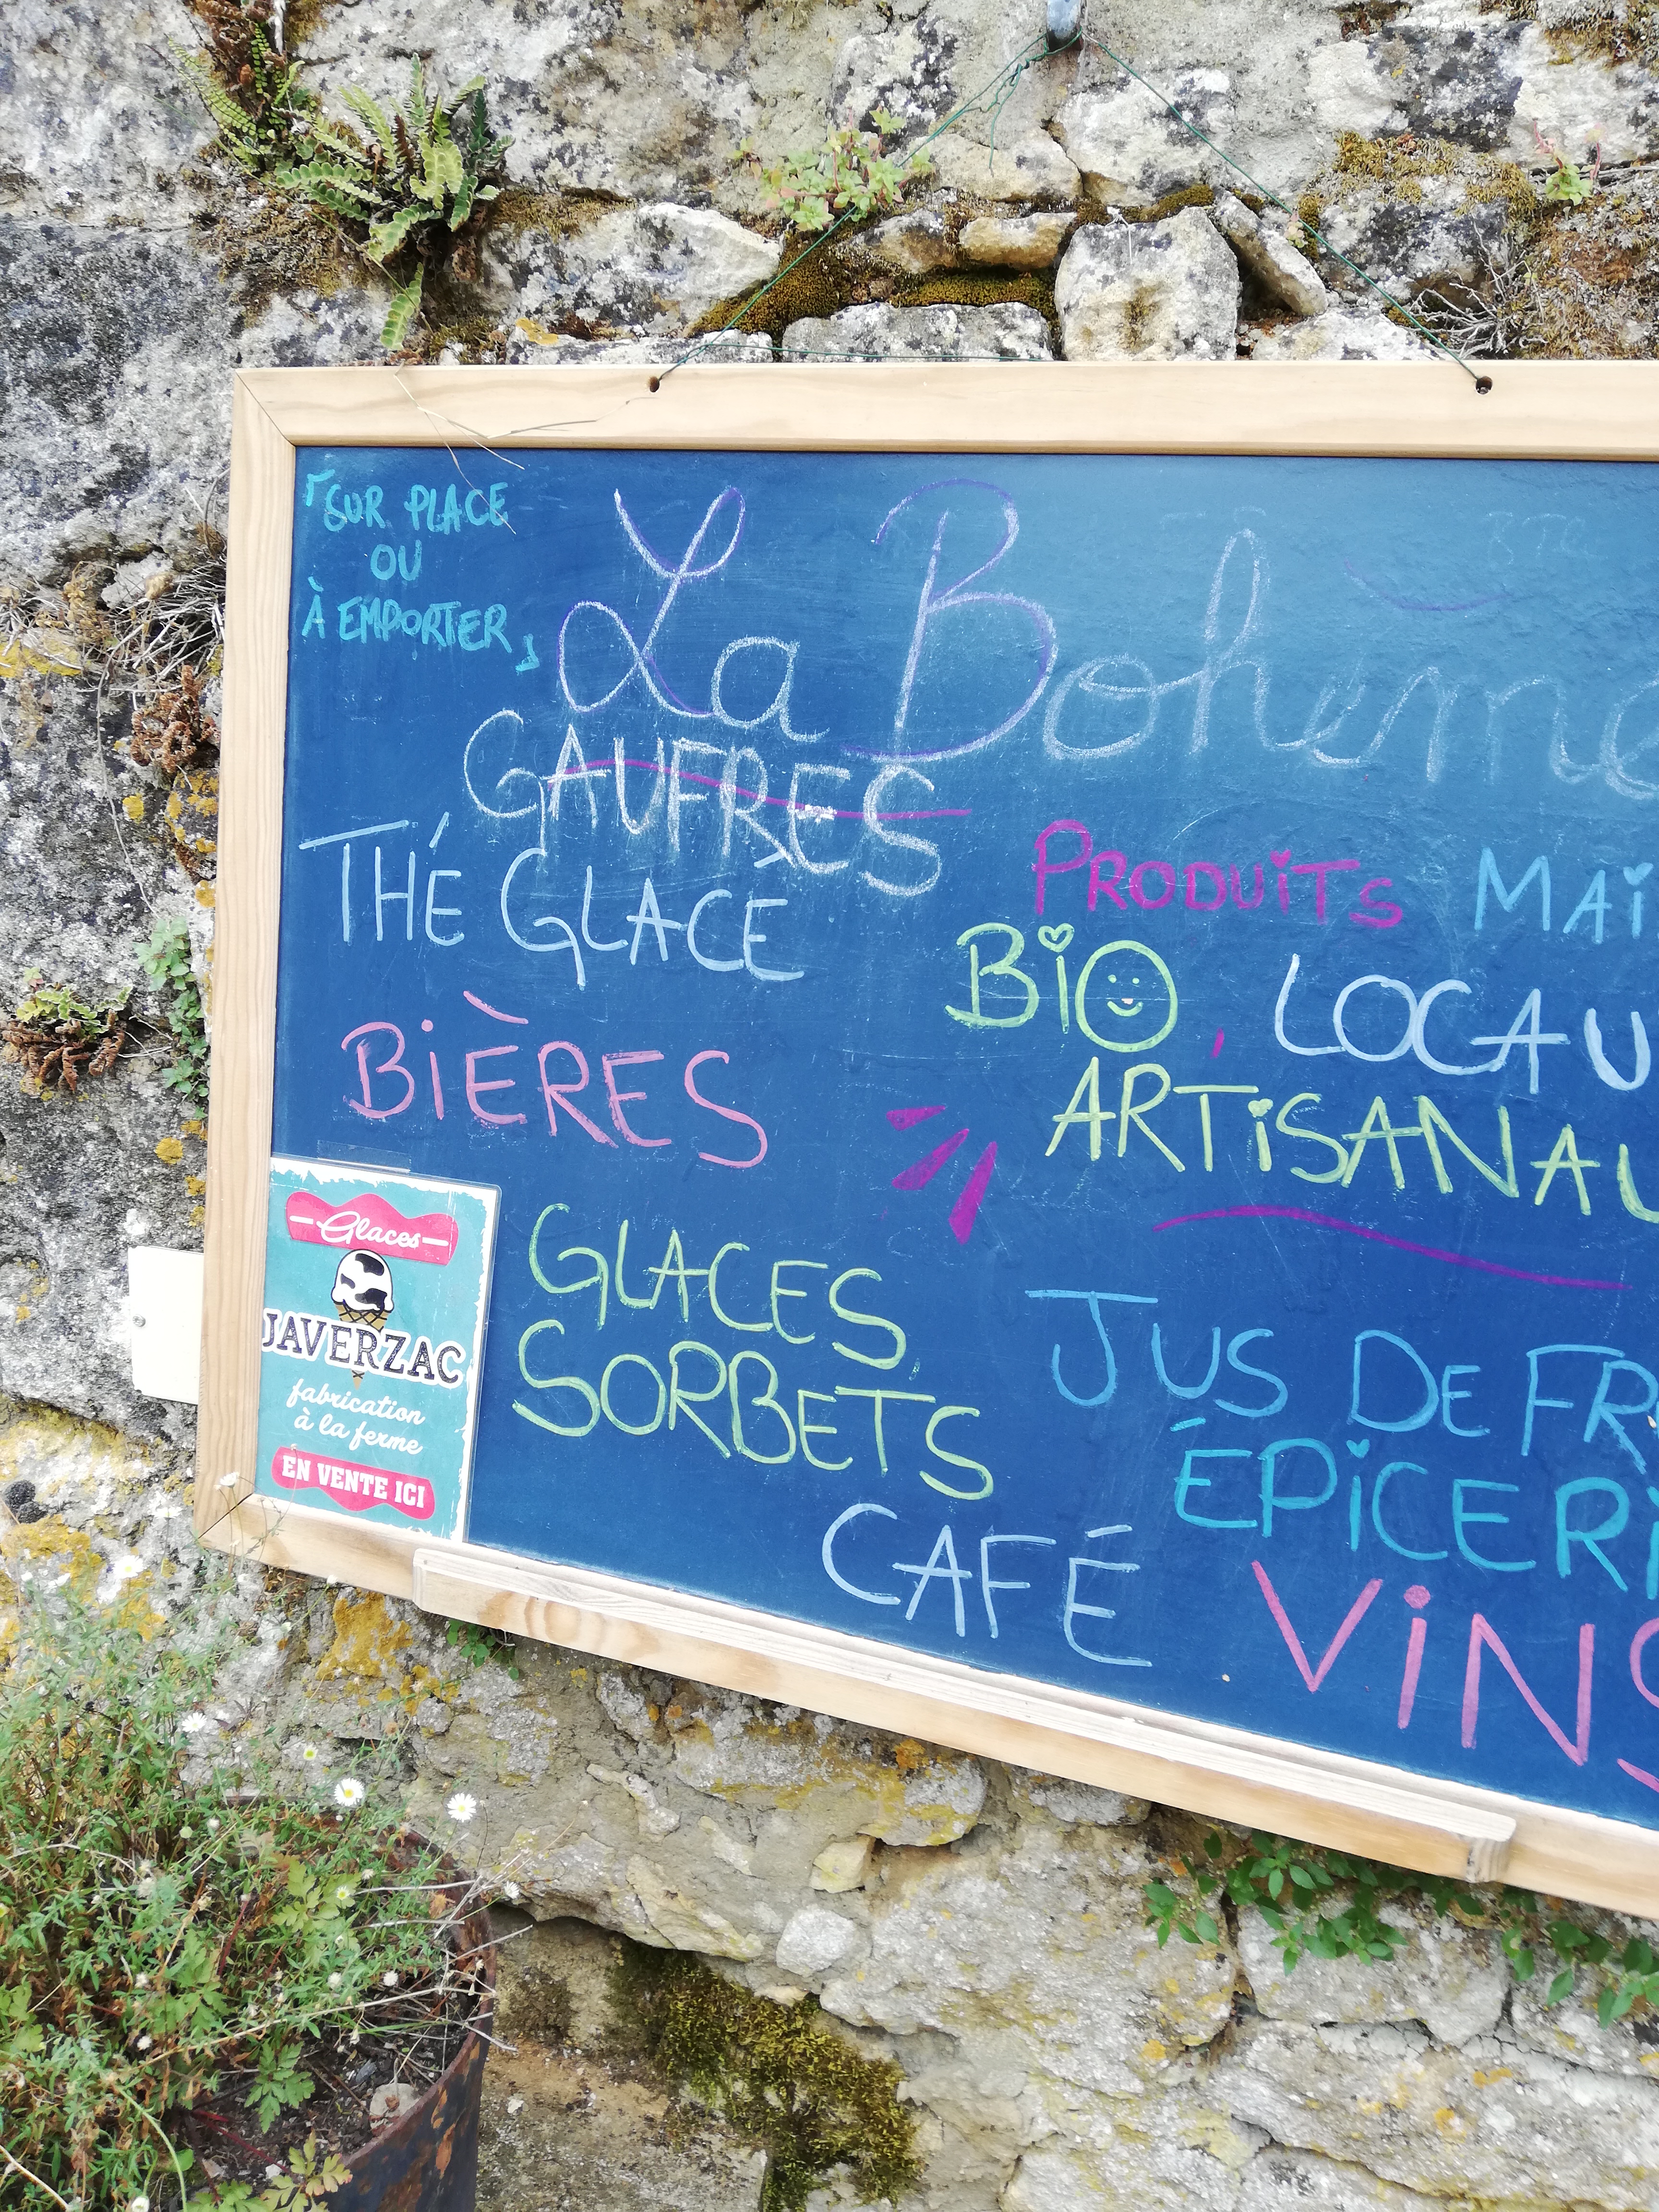 「SUR PLACE
OU
À EMPORTER」
La Bohème
GAUFRES
THÉ GLACÉ
BIÈRES
PRODUITS MAI
BIO, LOCAU
ARTISANAU
GLACES,
SORBETS
CAFÉ
JUS DE FR
ÉPICERI
VINS
Glaces
JAVERZAC
fabrication
à la ferme
EN VENTE ICI